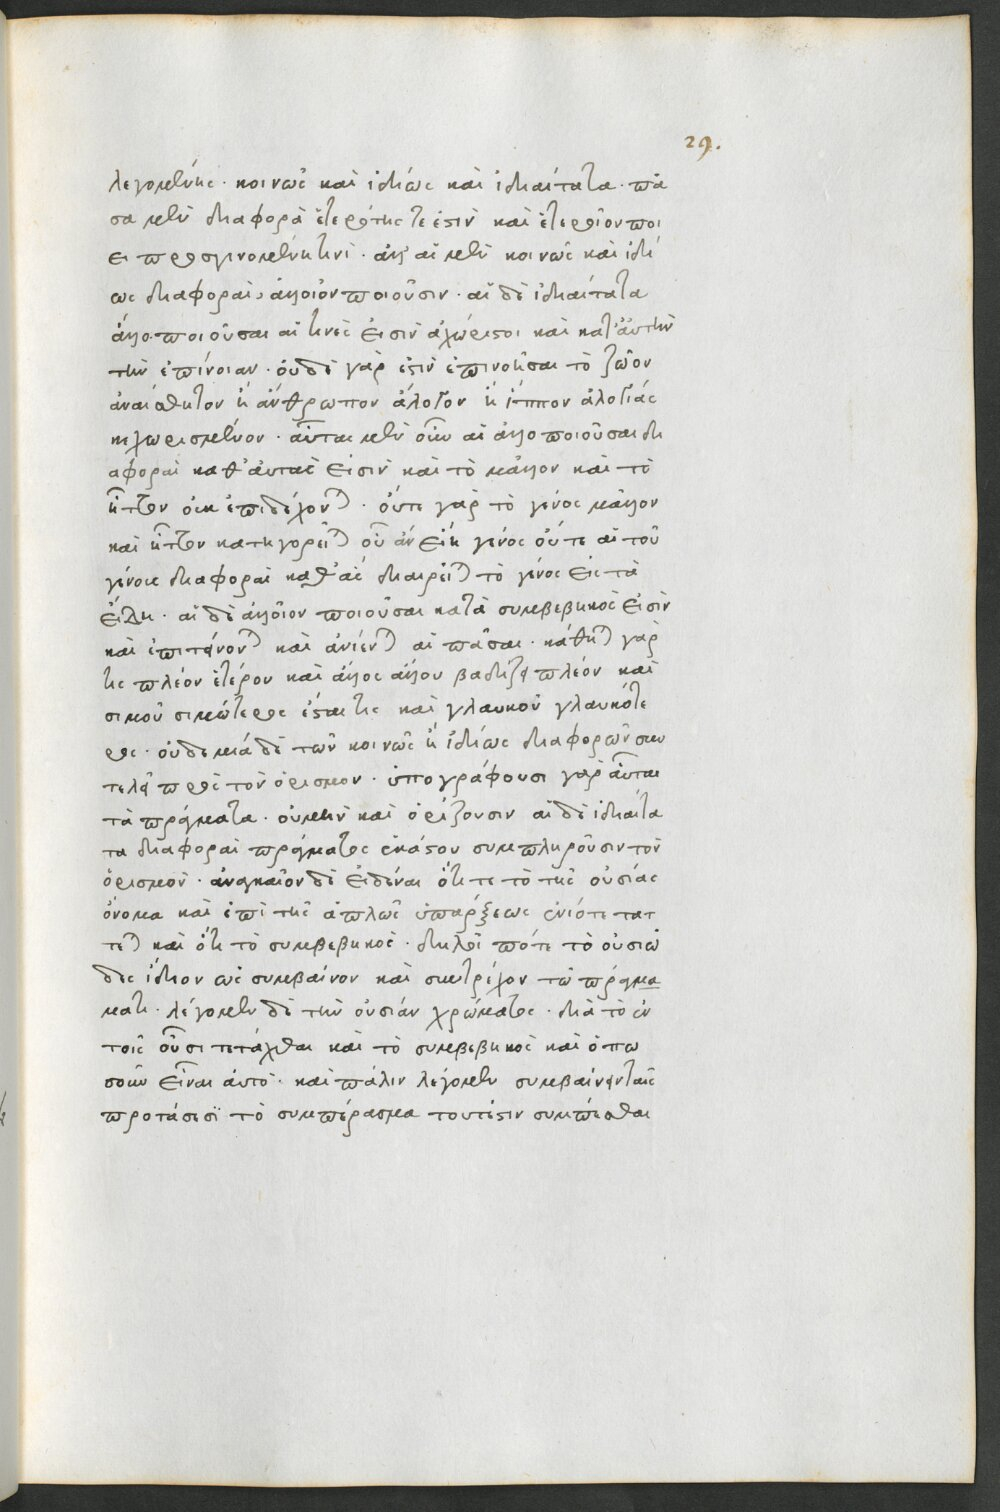 29.
λεγομένης· κοινῶς καὶ ἰδίως καὶ ἰδιαίτατα· πᾶ
σα μὲν διαφορὰ ἑτερότης τέ ἐστιν καὶ ἑτεροῖον ποι
εῖ προσγινομένη τινί· ἀλλ' αἱ μὲν κοινῶς καὶ ἰδί
ως διαφοραὶ, ἀλλοῖον ποιοῦσιν· αἱ δὲ ἰδιαίτατα
ἄλλο· ποιοῦσαι αἵ τινές εἰσιν ἀχώριστοι καὶ κατ' ἀυτὴν
τὴν ἐπίνοιαν· οὐδὲ γάρ ἐστιν ἐπινοῆσαι τὸ ζῶον
ἀναίσθητον ἢ ἄνθρωπον ἄλογον ἢ ἵππον ἀλογίας
κεχωρισμένον· αὗται μὲν οὖν αἱ ἀλλο ποιοῦσαι δι
αφοραὶ καθ' ἀυτάς εἰσιν καὶ τὸ μᾶλλον καὶ τὸ
ἧττον οὐκ ἐπιδέχονται· οὔτε γὰρ τὸ γένος μᾶλλον
καὶ ἧττον κατηγορεῖται οὗ ἂν εἴη γένος οὔτε αἱ τοῦ
γένους διαφοραὶ καθ' ἃς διαιρεῖται τὸ γένος εἰς τὰ
εἴδη· αἱ δὲ ἀλλοῖον ποιοῦσαι κατὰ συμβεβηκός εἰσιν
καὶ ἐπιτείνονται καὶ ἀνίενται αἱ πᾶσαι· κάθηται γάρ
τις πλέον ἑτέρου καὶ ἄλλος ἄλλου βαδίζει πλέον καὶ
σιμοῦ σιμώτερος ἔσται τις καὶ γλαυκοῦ γλαυκότε
ρος· οὐδεμία δὲ τῶν κοινῶς ἢ ἰδίως διαφορῶν συν
τελεῖ πρὸς τὸν ὁρισμον· ὑπογράφουσι γὰρ αὗται
τὰ πράγματα· οὐμὴν καὶ ὁρίζουσιν αἱ δὲ ἰδιαίτα
τα διαφοραὶ πράγματος ἑκάστου συμπληροῦσιν τὸν
ὁρισμόν· ἀναγκαῖον δὲ εἰδέναι ὅτι τε τὸ τῆς οὐσίας
ὄνομα καὶ ἐπὶ τῆς ἁπλῶς ὑπάρξεως ἐνίοτε τατ
τεται καὶ ὅτι τὸ συμβεβηκὸς· δηλοῖ πότε τὸ οὐσιῶ
δες ἴδιον ὡς συμβαίνον καὶ συντρέχον τῶ πράγμα
ματι· λέγομεν δὲ τὴν οὐσίαν χρώματος· διὰ τὸ ἐν
τοῖς οὖσι τετάχθαι καὶ τὸ συμβεβηκὸς καὶ ὁπω
σοῦν εἶναι ἀυτό· καὶ πάλιν λέγομεν συμβαίνειν ταῖς
προτάσεσϊ τὸ συμπέρασμα τουτέστιν συμπίεσθαι